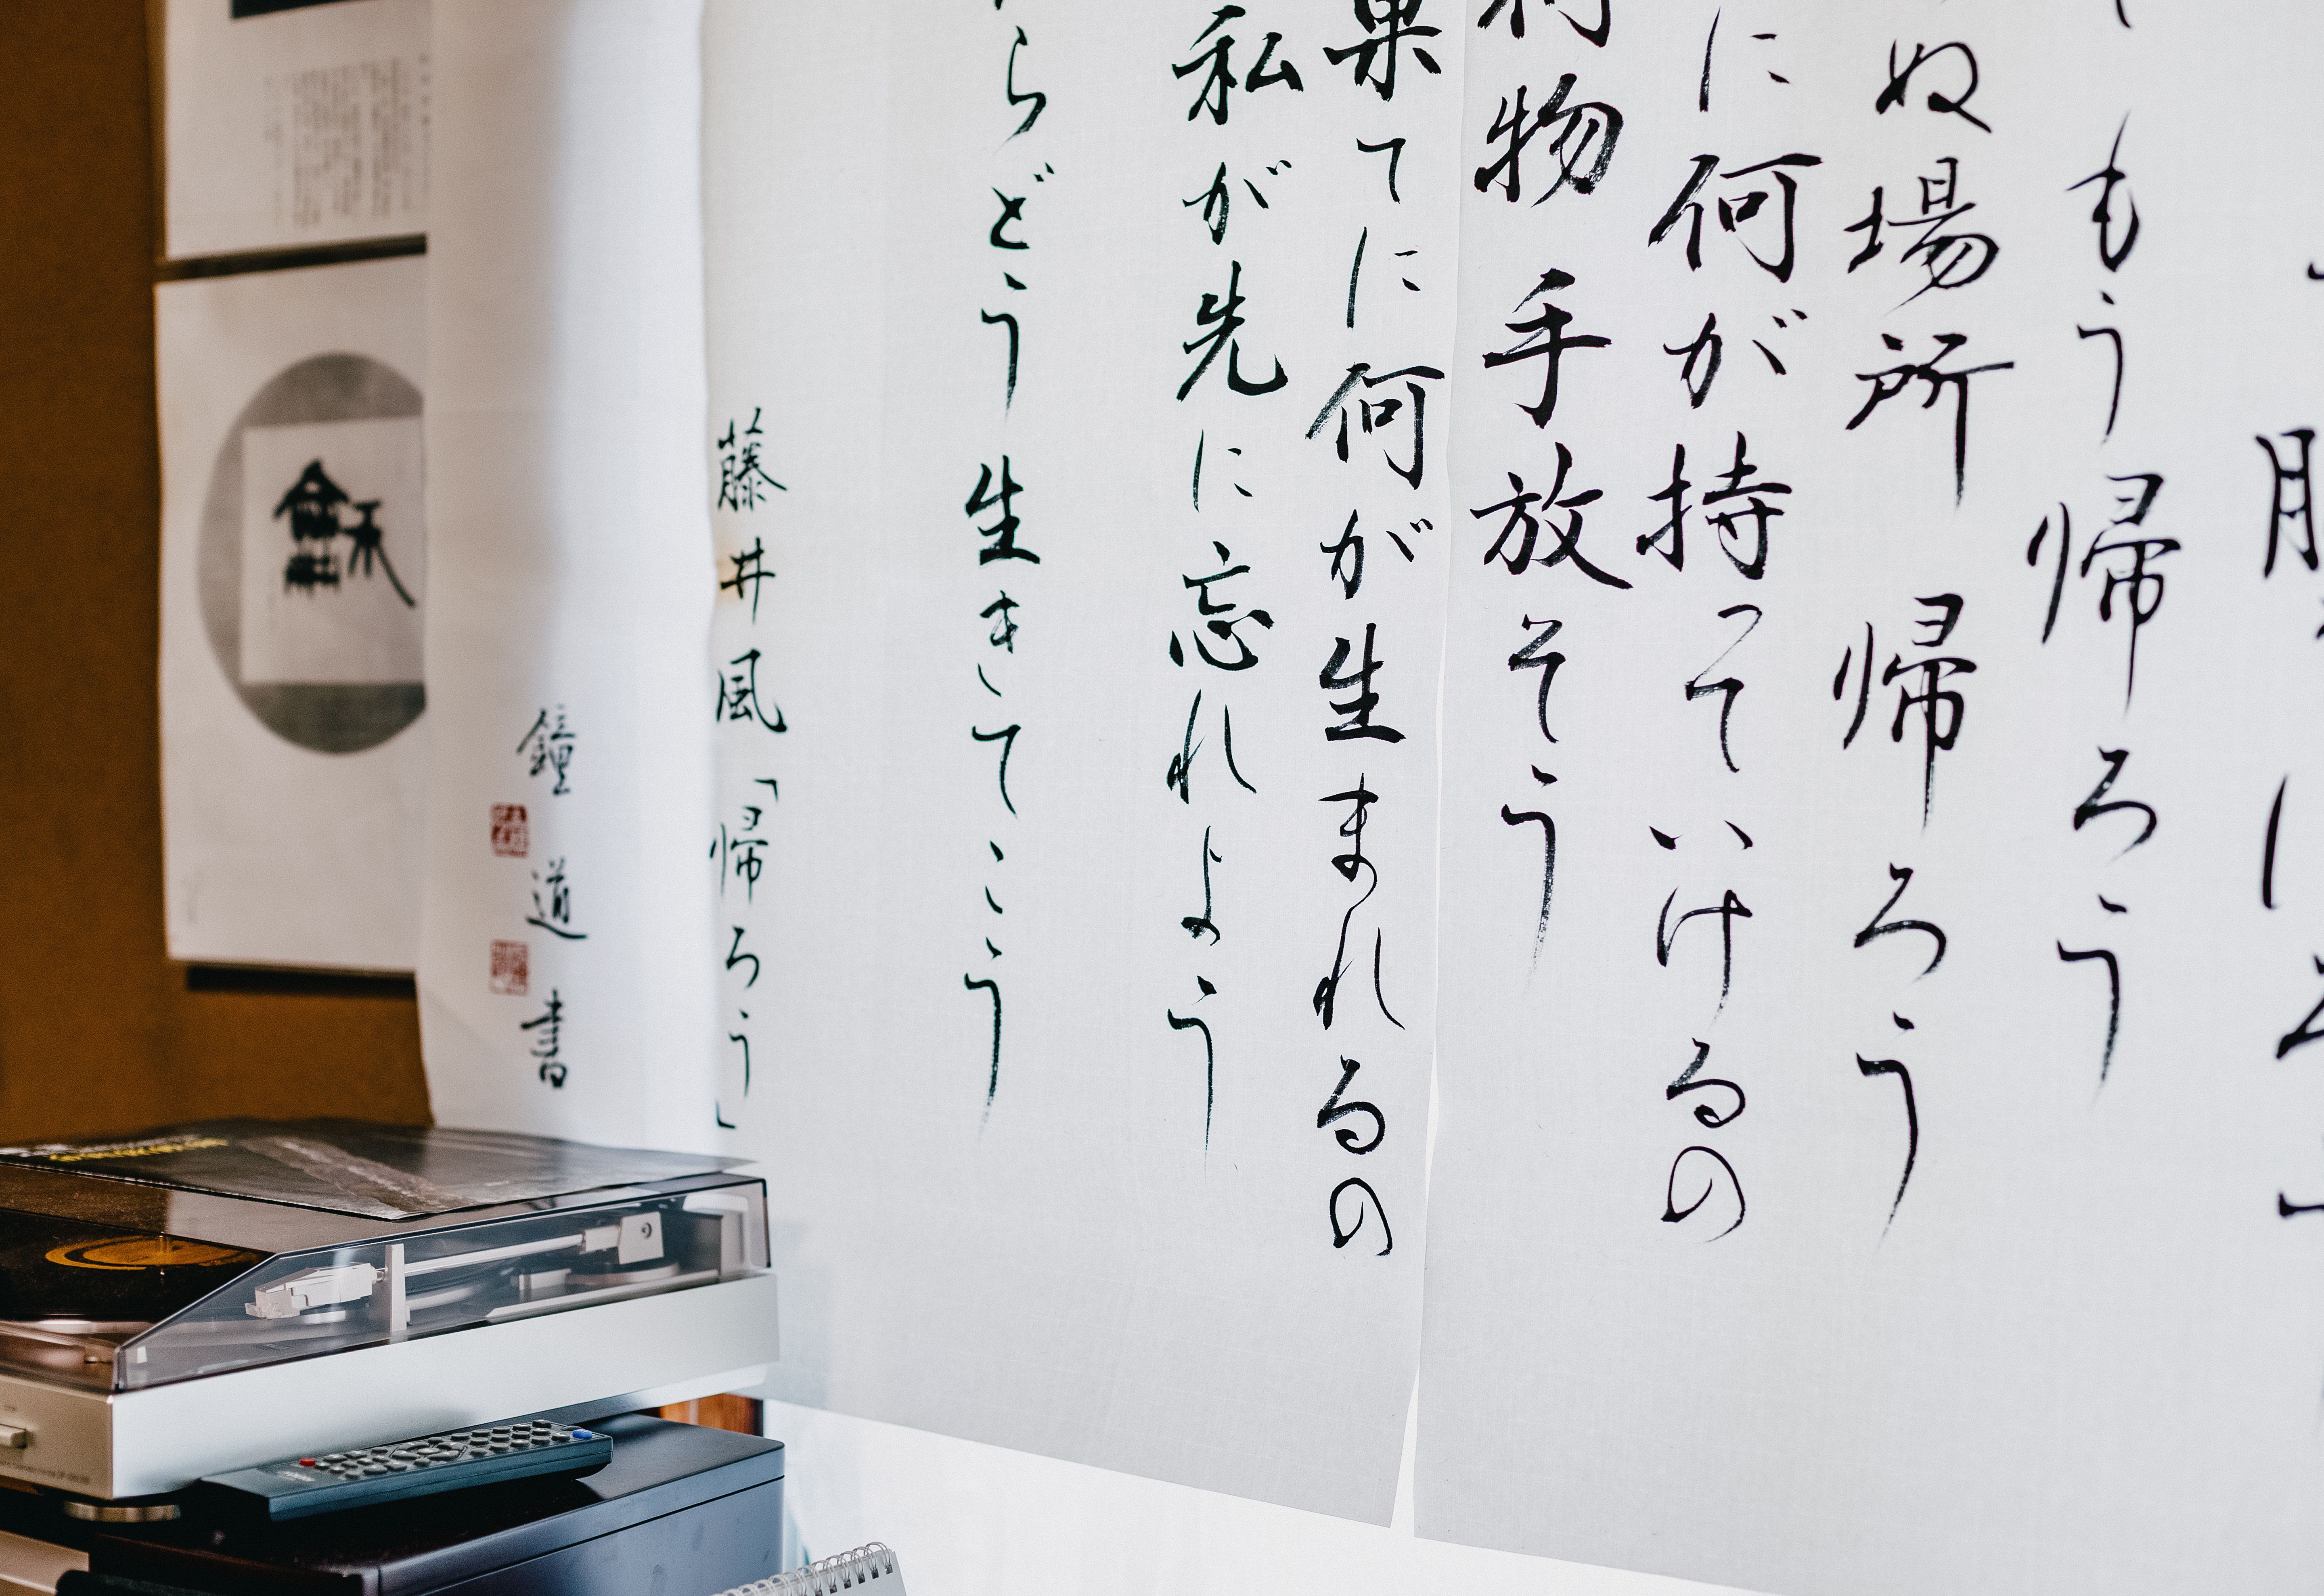 もう帰ろう
ぬ場所 帰ろう
に何が持っていけるの
物 手放そう
果てに何が生まれるの
私が先に忘れよう
らどう 生きてこう
藤井風「帰ろう」
鐘道書